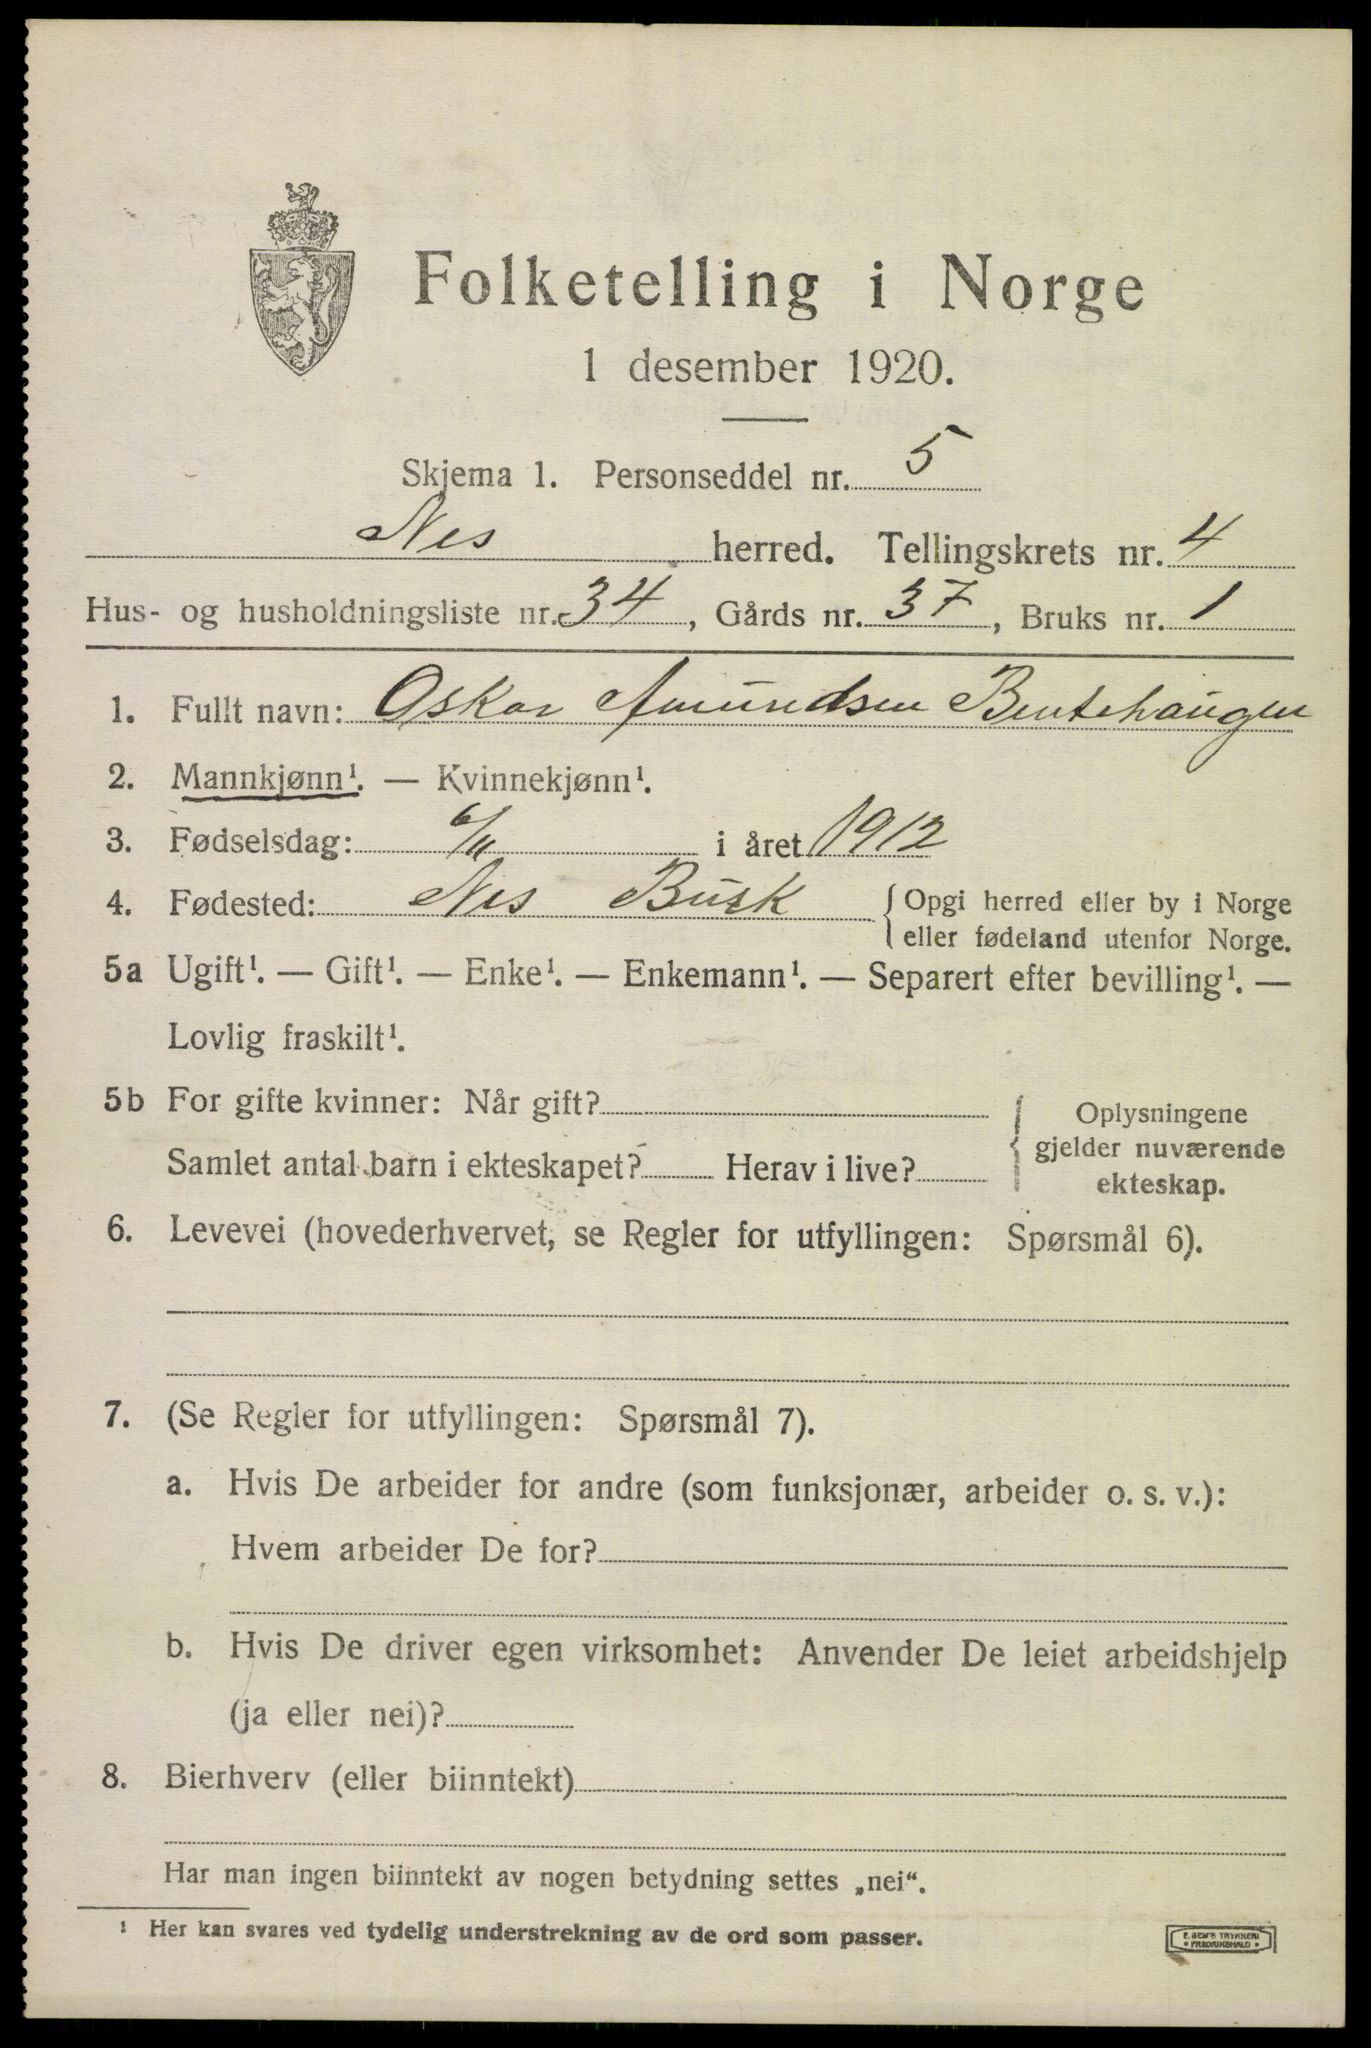 Folketelling i Norge
1 desember 1920.
Skjema 1. Personseddel nr. 5
Nes herred. Tellingskrets nr. 4
Hus- og husholdningsliste nr. 34, Gårds nr. 37, Bruks nr. 1
1. Fullt navn: Oskar Amundsen Bentehaugen
2. Mannkjønn¹. — Kvinnekjønn¹.
3. Fødselsdag: 6/11 i året 1912
4. Fødested: Nes Busk { Opgi herred eller by i Norge
eller fødeland utenfor Norge.
5a Ugift¹. — Gift¹. — Enke¹. — Enkemann¹. — Separert efter bevilling¹. —
Lovlig fraskilt¹.
5b For gifte kvinner: Når gift?
Samlet antal barn i ekteskapet? Herav i live?
{ Oplysningene
gjelder nuværende
ekteskap.
6. Levevei (hovederhvervet, se Regler for utfyllingen: Spørsmål 6).
7. (Se Regler for utfyllingen: Spørsmål 7).
a. Hvis De arbeider for andre (som funksjonær, arbeider o. s. v.):
Hvem arbeider De for?
b. Hvis De driver egen virksomhet: Anvender De leiet arbeidshjelp
(ja eller nei)?
8. Bierhverv (eller biinntekt)
Har man ingen biinntekt av nogen betydning settes „nei“.
¹ Her kan svares ved tydelig understrekning av de ord som passer.
E. SEM'S TRYKKERI
• FREDRIKSHALD •